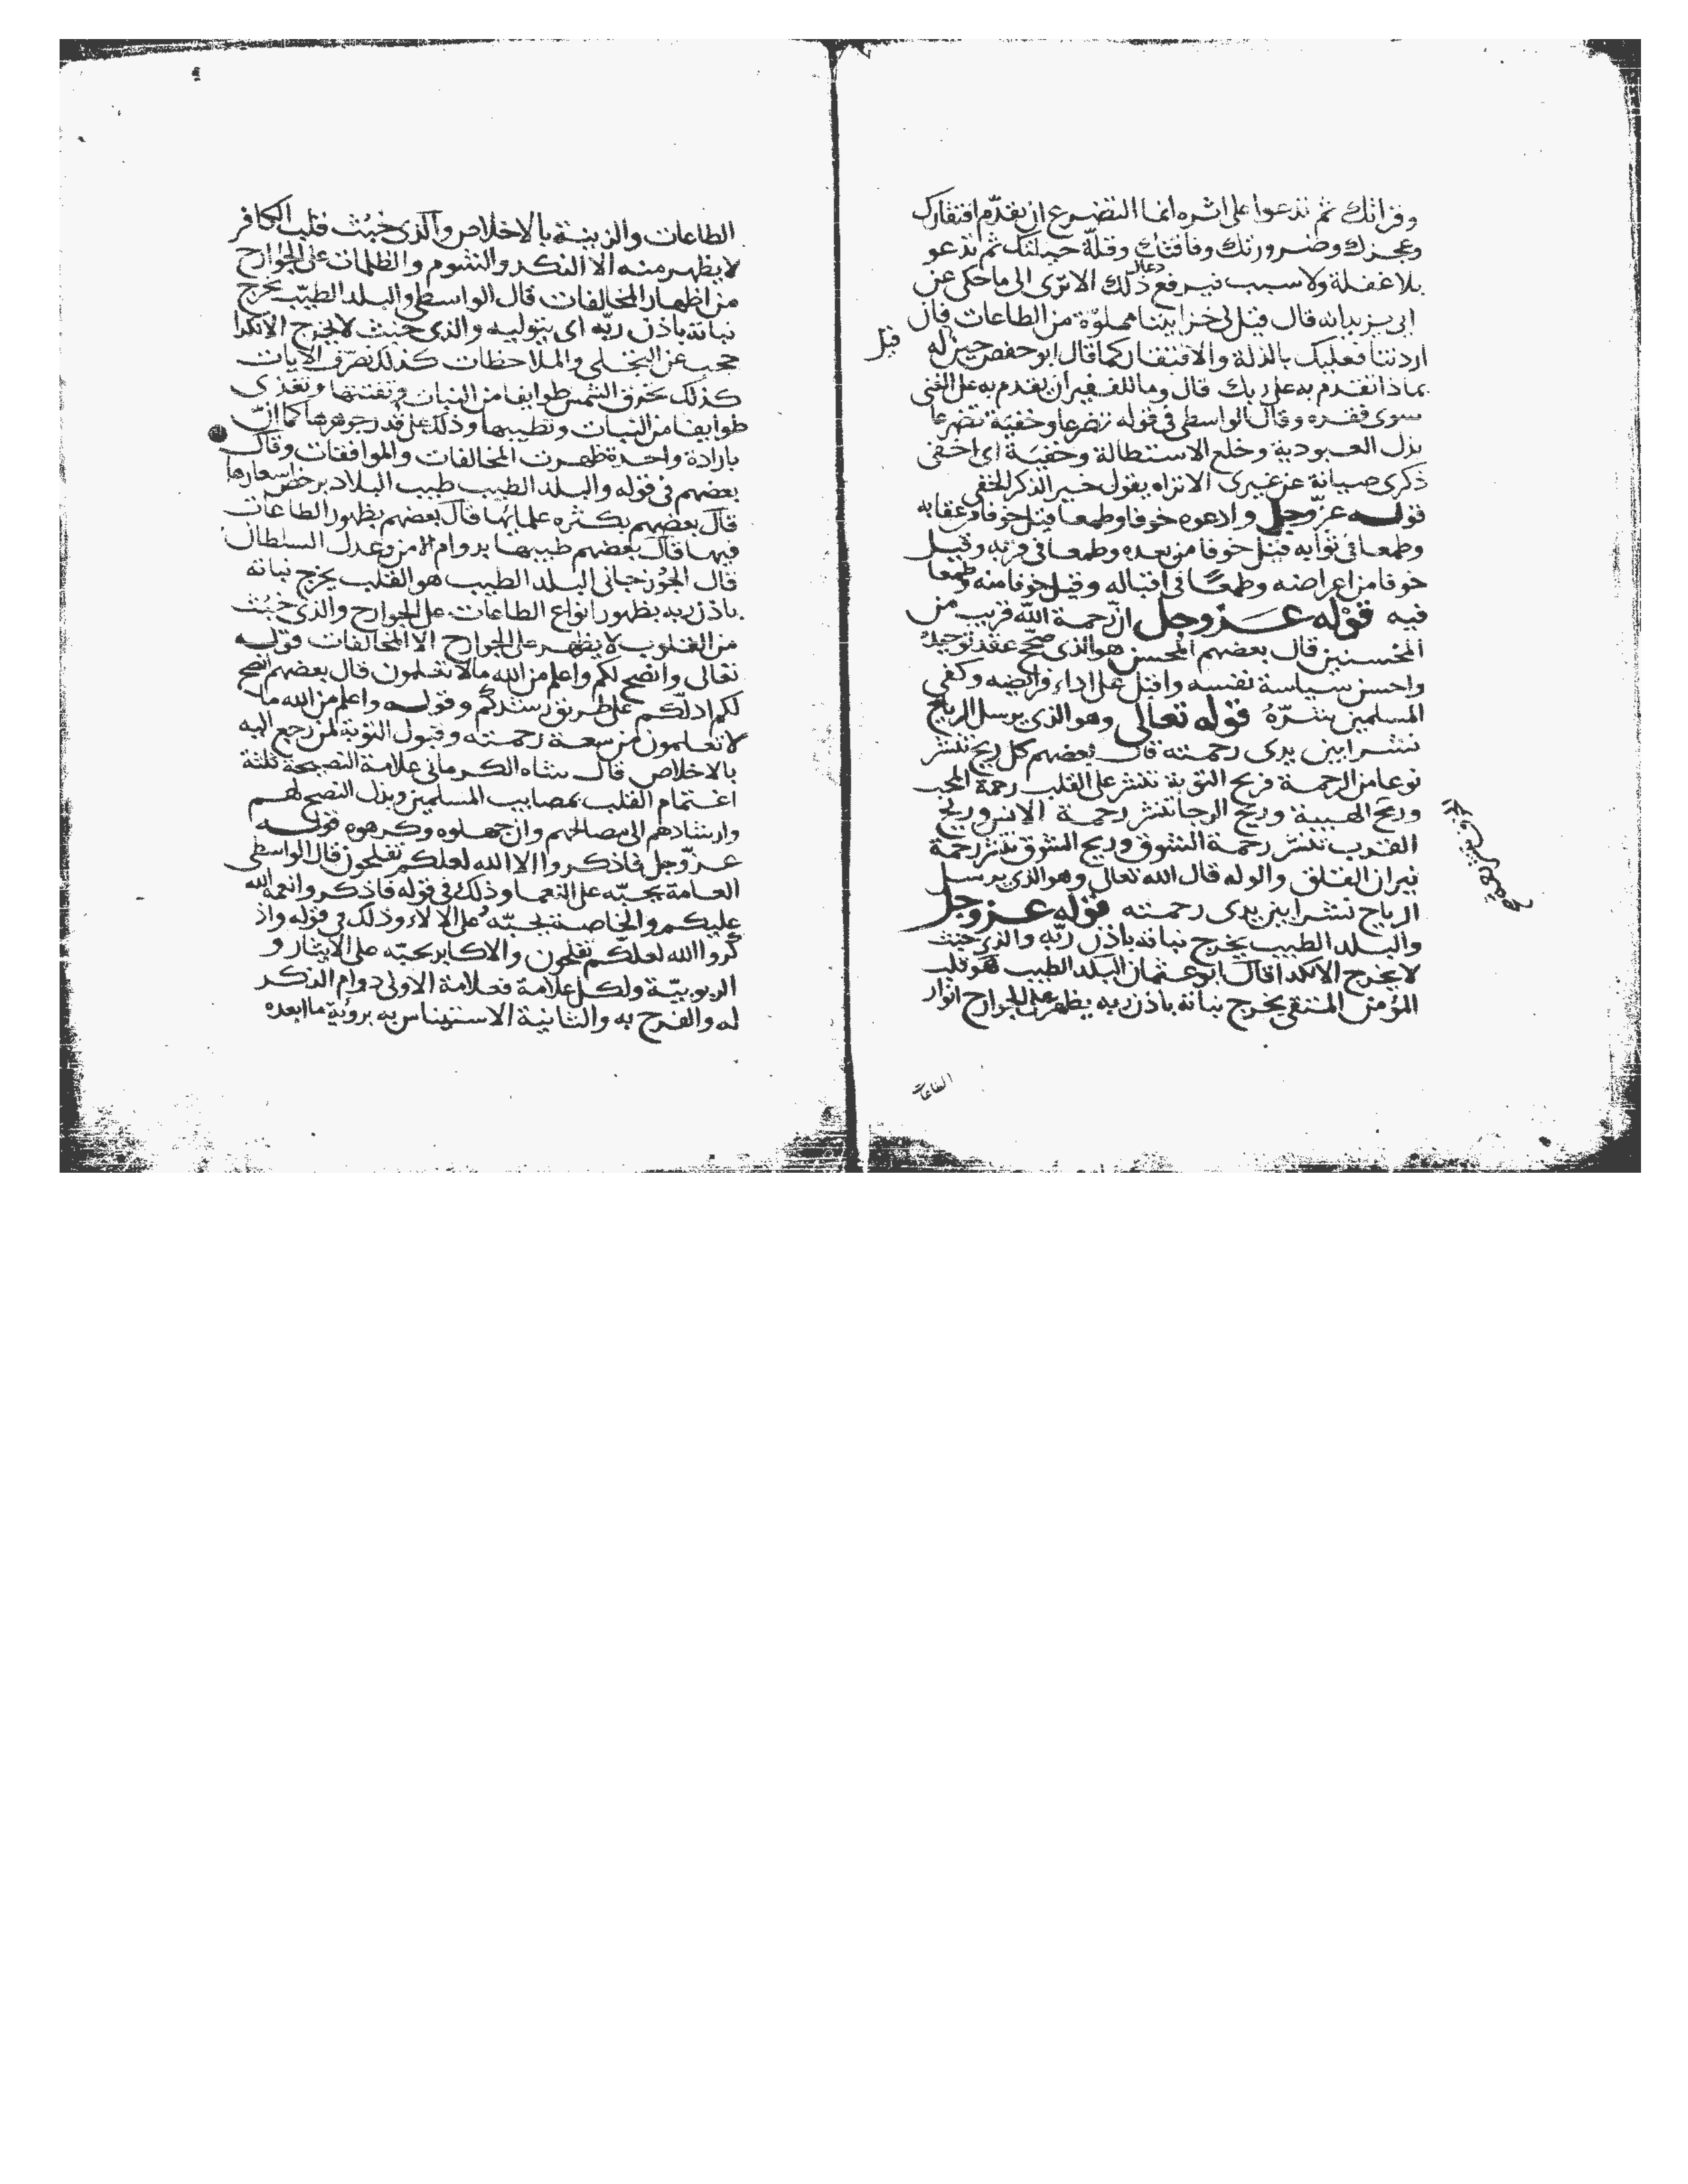 وقراتك ثم تدعوا على اثره انما التضرع ان يقدّم افتقارك
وعجزك وضرورتك وفاقتك وقلّة حيلتك ثم تدعو
بلا غفلة ولا سبب فيرفع دعاك ذلك الا ترى الى ما حكى عن
ابى يزيد انه قال قيل لى خزايننا مملوّة من الطاعات فان
اردتنا فعليك بالذلة والافتقار كما قال ابو حفص حين له
قيل
بماذا تقدم به على ربك قال وما للفقير ان يقدم به على الغنى
سوى فقره وقال الواسطى فى قوله تضرعا وخفية تضرعا
بذل العبودية وخلع الاستطالة وخفية اى اخفى
ذكرى صيانة عن غيرى الا تراه يقول خير الذكر الخفى
قوله عزّ وجل وادعوه خوفا وطمعا قيل خوفا من عقابه
وطمعا فى ثوابه قيل خوفا من بعده وطمعا فى قربه وقيل
خوفا من اعراضه وطمعًا فى اقباله وقيل خوفا منه وطمعا
فيه قوله عز وجل ان رحمة الله قريب من
المحسنين قال بعضهم المحسن هو الذى صحّح عقد توحيده
واحسن سياسة نفسه واقبل على اداء فرايضه وكفى
المسلمين شرّه قوله تعالى وهو الذى يرسل الرياح
نشرا بين يدى رحمته قال بعضهم كل ريح تنشر
نوعا من الرحمة فريح التوبة تنشر على القلب رحمة المحبه
وريح الهيبة وريح الرجا تنشر رحمة الانس وريح
القرب تنشر رحمة الشوق وريح الشوق تنشر رحمة
نيران القلق والوله قال الله تعالى وهو الذى يرسل
الرياح نشرا بين يدى رحمته قوله عز وجل
والبلد الطيب يخرج نباته باذن ربّه والذى خبث
لا يخرج الا نكدا قال ابو عثمان البلد الطيب هو قلب
المؤمن المتقى يخرج نباته باذن ربه يظهر على الجوارح انوار
الطاعات
الطاعات والزينة بالاخلاص والذى خبُث قلب الكافر
لا يظهر منه الا النكد والشوم والظلمات على الجوارح
من اظهار المخالفات قال الواسطى والبلد الطيّب يخرج
نباته باذن ربّه اى بتوليه والذى خبث لا يخرج الا نكدا
حجب عن التجلى والملاحظات كذلك نصرّف الايات
كذلك تحرق الشمس طوايفا من النبات وتفتتها وتغذى
طوايفا من النبات وتطيبها وذلك على قدر جوهرها كما انّ
بارادة واحدة ظهرت المخالفات والموافقات وقال
بعضهم فى قوله والبلد الطيب طيب البلاد برخص اسعارها
قال بعضهم بكثره علمايها قال بعضهم بظهور الطاعات
فيها قال بعضهم طيبها بدوام الامن وعدل السلطان
قال الجُوزجانى البلد الطيب هو القلب يخرج نباته
باذن ربه بظهور انواع الطاعات على الجوارح والذى خبُث
من القلوب لا يظهر على الجوارح الّا المخالفات قوله
تعالى وانصح لكم واعلم من الله ما لا تعلمون قال بعضهم انصح
لكم ادلّكم على طريق رشدكم وقوله واعلم من الله ما
لا تعلمون من سعة رحمته وقبول التوبة لمن رجع اليه
بالاخلاص قال شاه الكرمانى علامة النصيحة ثلثة
اغتمام القلب بمصايب المسلمين وبذل النصح لهم
وارشادهم الى مصالحهم وان جهلوه وكرهوه قوله
عزّ وجل فاذكروا الا الله لعلكم تفلحون قال الواسطى
العامة يحبّه على النعما وذلك فى قوله فاذكروا نعمة الله
عليكم والخاصة يحبّه على الالاء وذلك فى قوله واذ
كروا الله لعلّكم تفلحون والاكابر يحبّه على الايثار و
الربوبيّة ولكل علامة فعلامة الاولى دوام الذكر
له والفرح به والثانية الاستيناس به برؤية ما ابعده